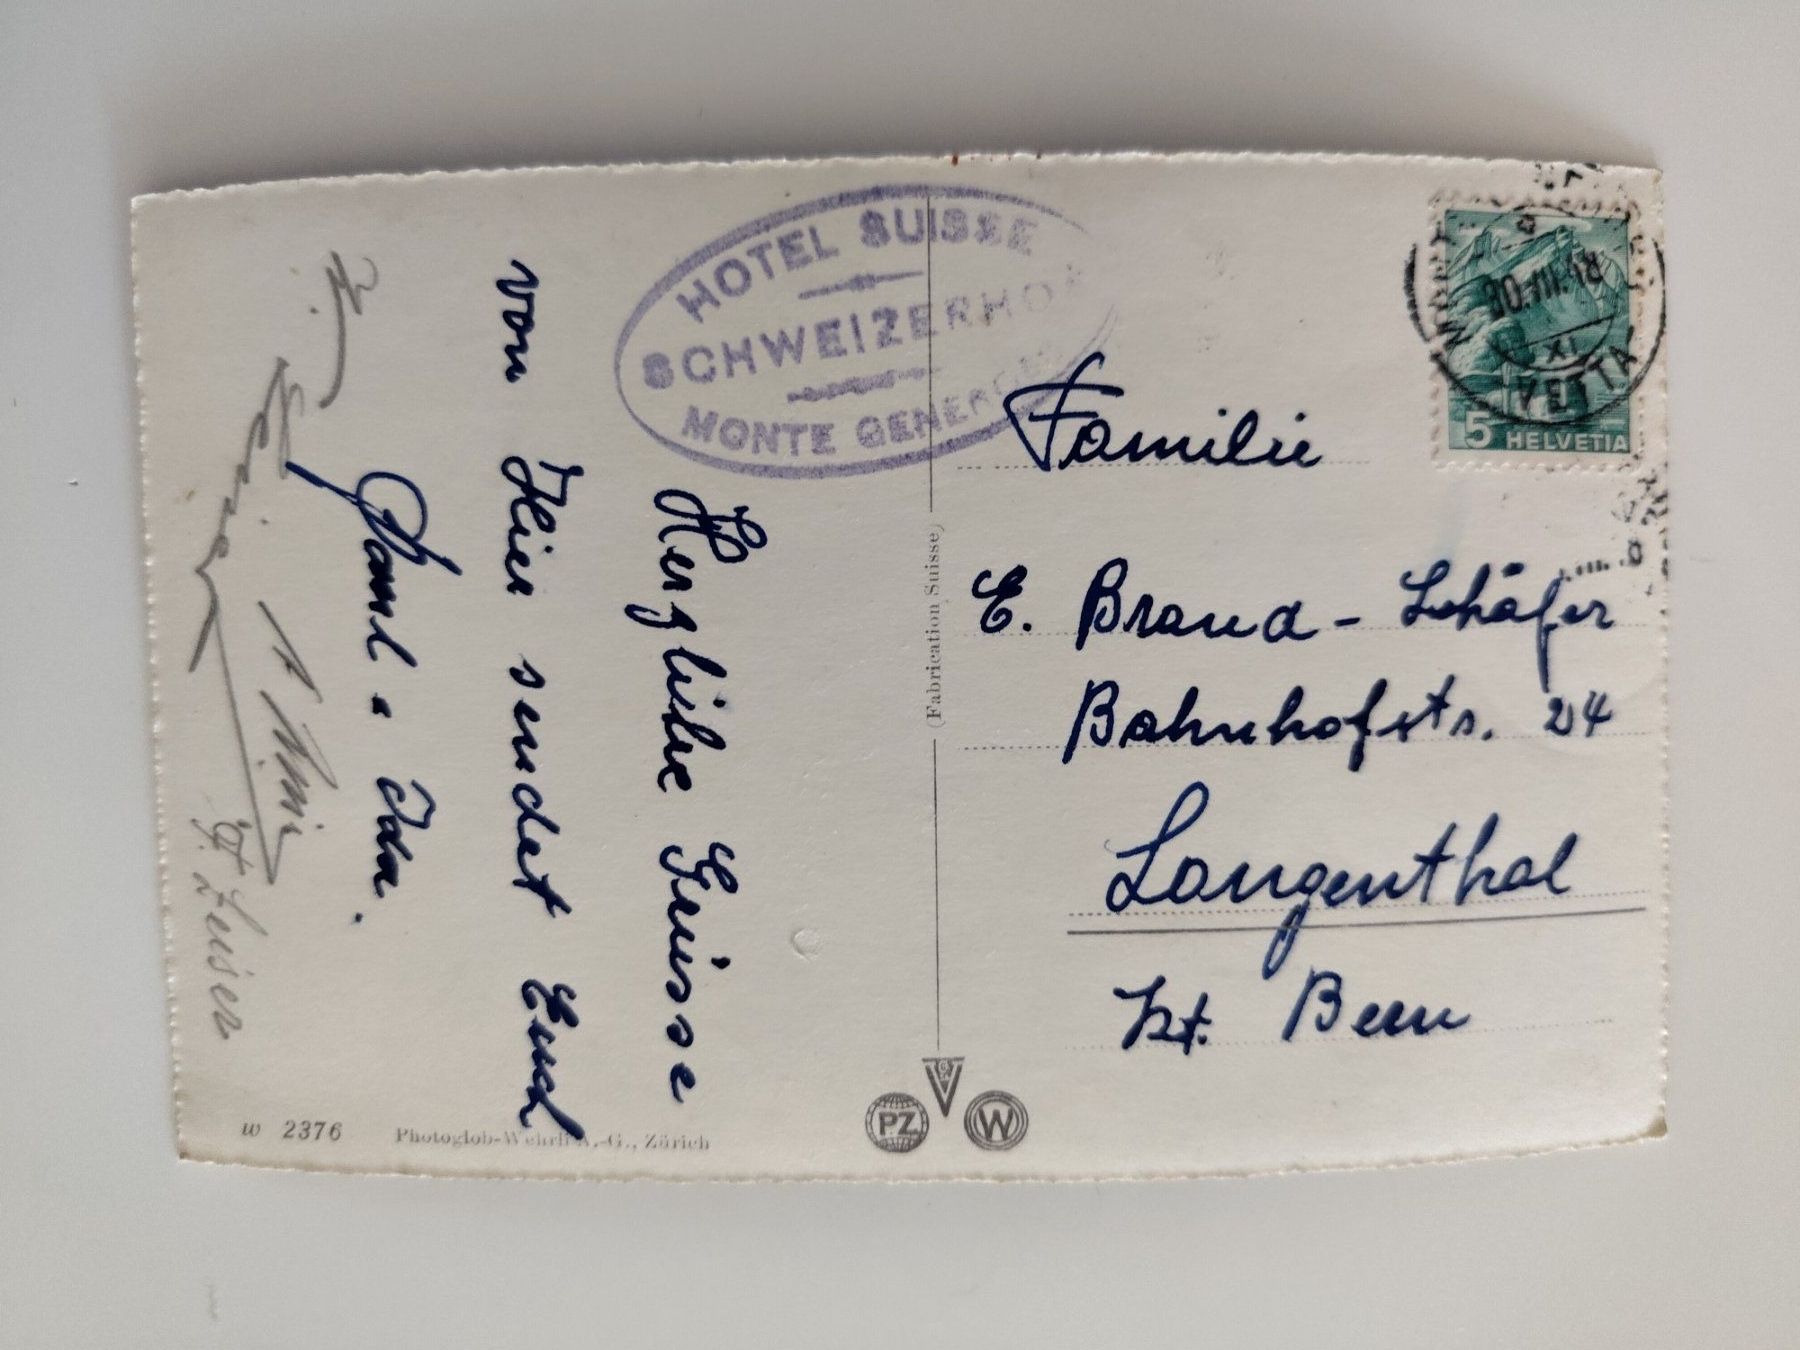 HOTEL SUISSE
SCHWEIZERHOF
MONTE GENEROSO
Herzliche Grüsse
von Hier sendet Euch
Paul u Ida.
H. Leuenb
A. Mimi
H. Leiser
(Fabrication Suisse)
5 HELVETIA
VETTA
Familie
E. Brand - Schäfer
Bahnhofstr. 24
Langenthal
Kt. Bern
w 2376
Photoglob-Wehrli A.-G., Zürich
PZ
W